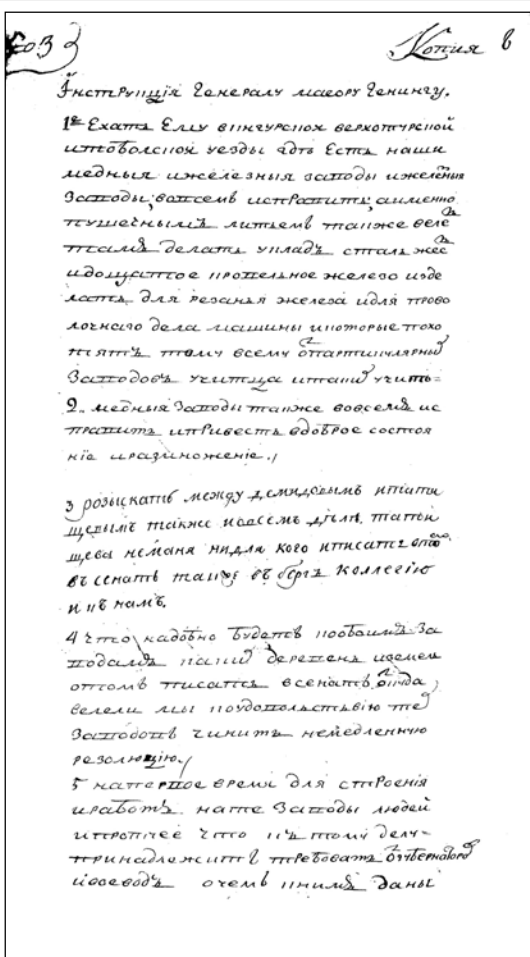 Копия в
Інструкція Генералу маеору Генингу.
1е Ехать Ему вкунгурской верхотурской
итоболской уезды гдѣ Есть наши
медныя ижелезныя заводы ижелезныя
Заводы, вовсемъ исправить, аименно
пушечнымъ литьемъ также веле
тамъ делать укладъ сталь жес
идощатое кровельное железо изде
лать для резанья железа идля прово
лочнаго дела машины икоторые похо
тятъ тому всему отпартикулярныхъ
Заводовъ учитца итаких учить=
2. медныя Заводы также вовсемъ ис
править ипривесть вдоброе состоя
ніе иразмноженіе.
3 розыскать между демидовымъ итати
щевымъ также иовсемъ дѣлѣ. татищева
щева неманя нидля кого иписать отом
въ сенатъ также въ бергъ Коллегію
и къ намъ.
4 что надобно будетъ ктѣмъ за
водамъ каких деревень иземел
отомъ писать всенатъ откуда
велели мы поудовольствію тех
Заводовъ чинить немедленную
резолюцію.
5 напервое время для строенія
иработъ нате Заводы людей
ипротчее что къ тому делу
принадлежитъ требовать отгубернаторовъ
ивоеводъ очемъ книмъ даны